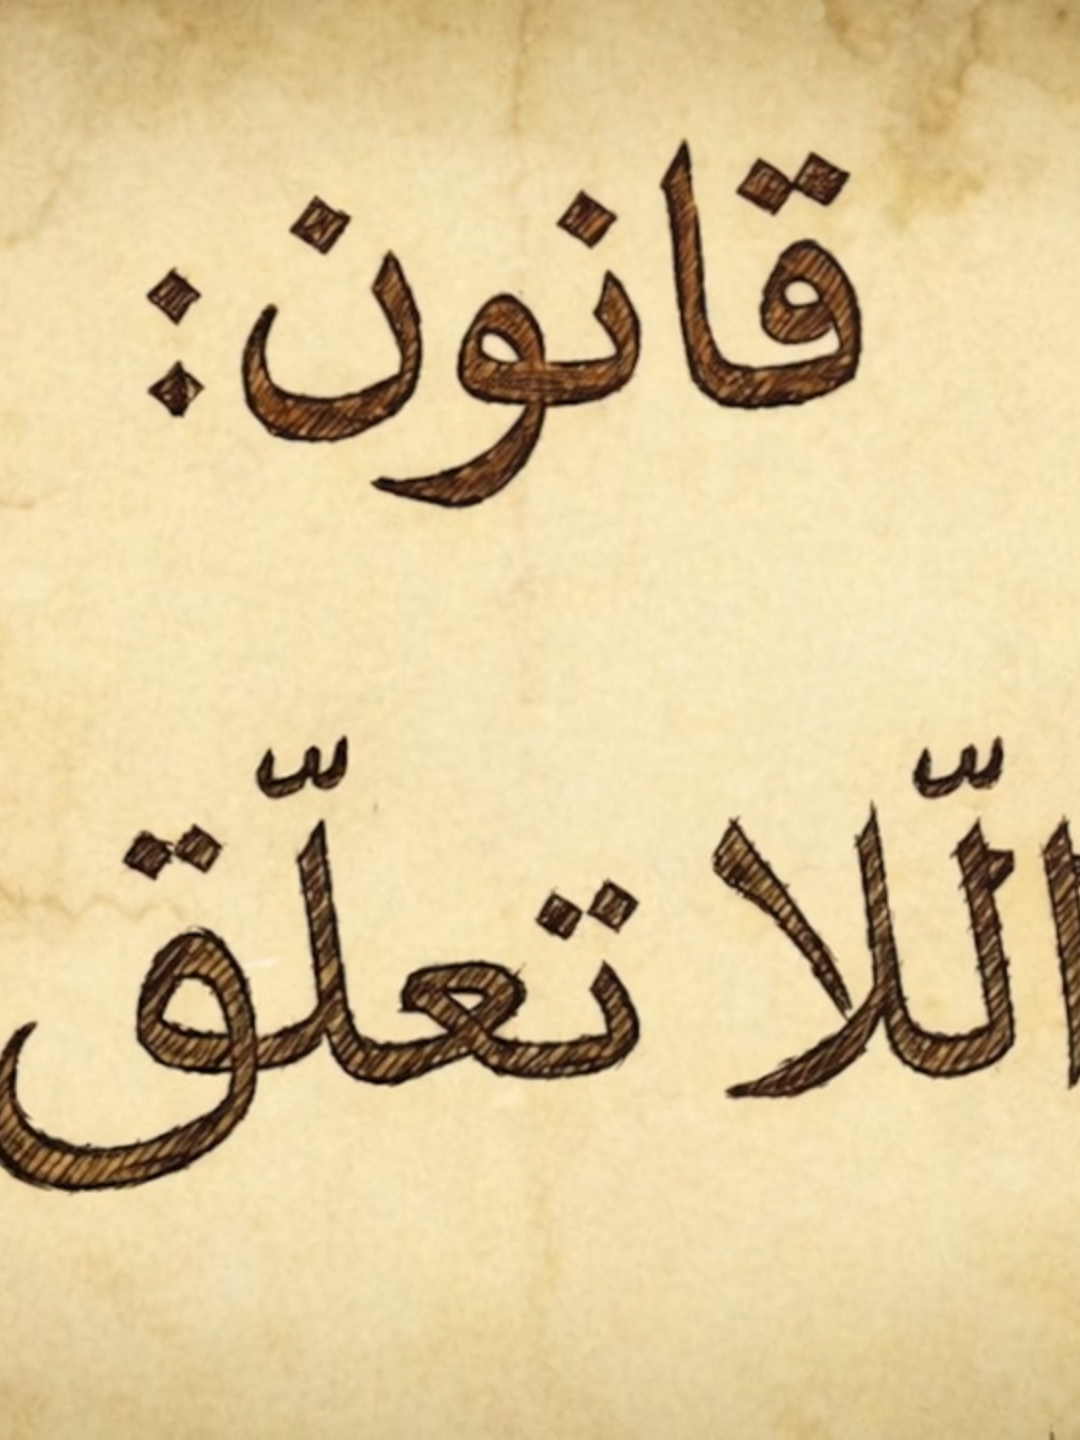 قانون:
اللّا تعلّق